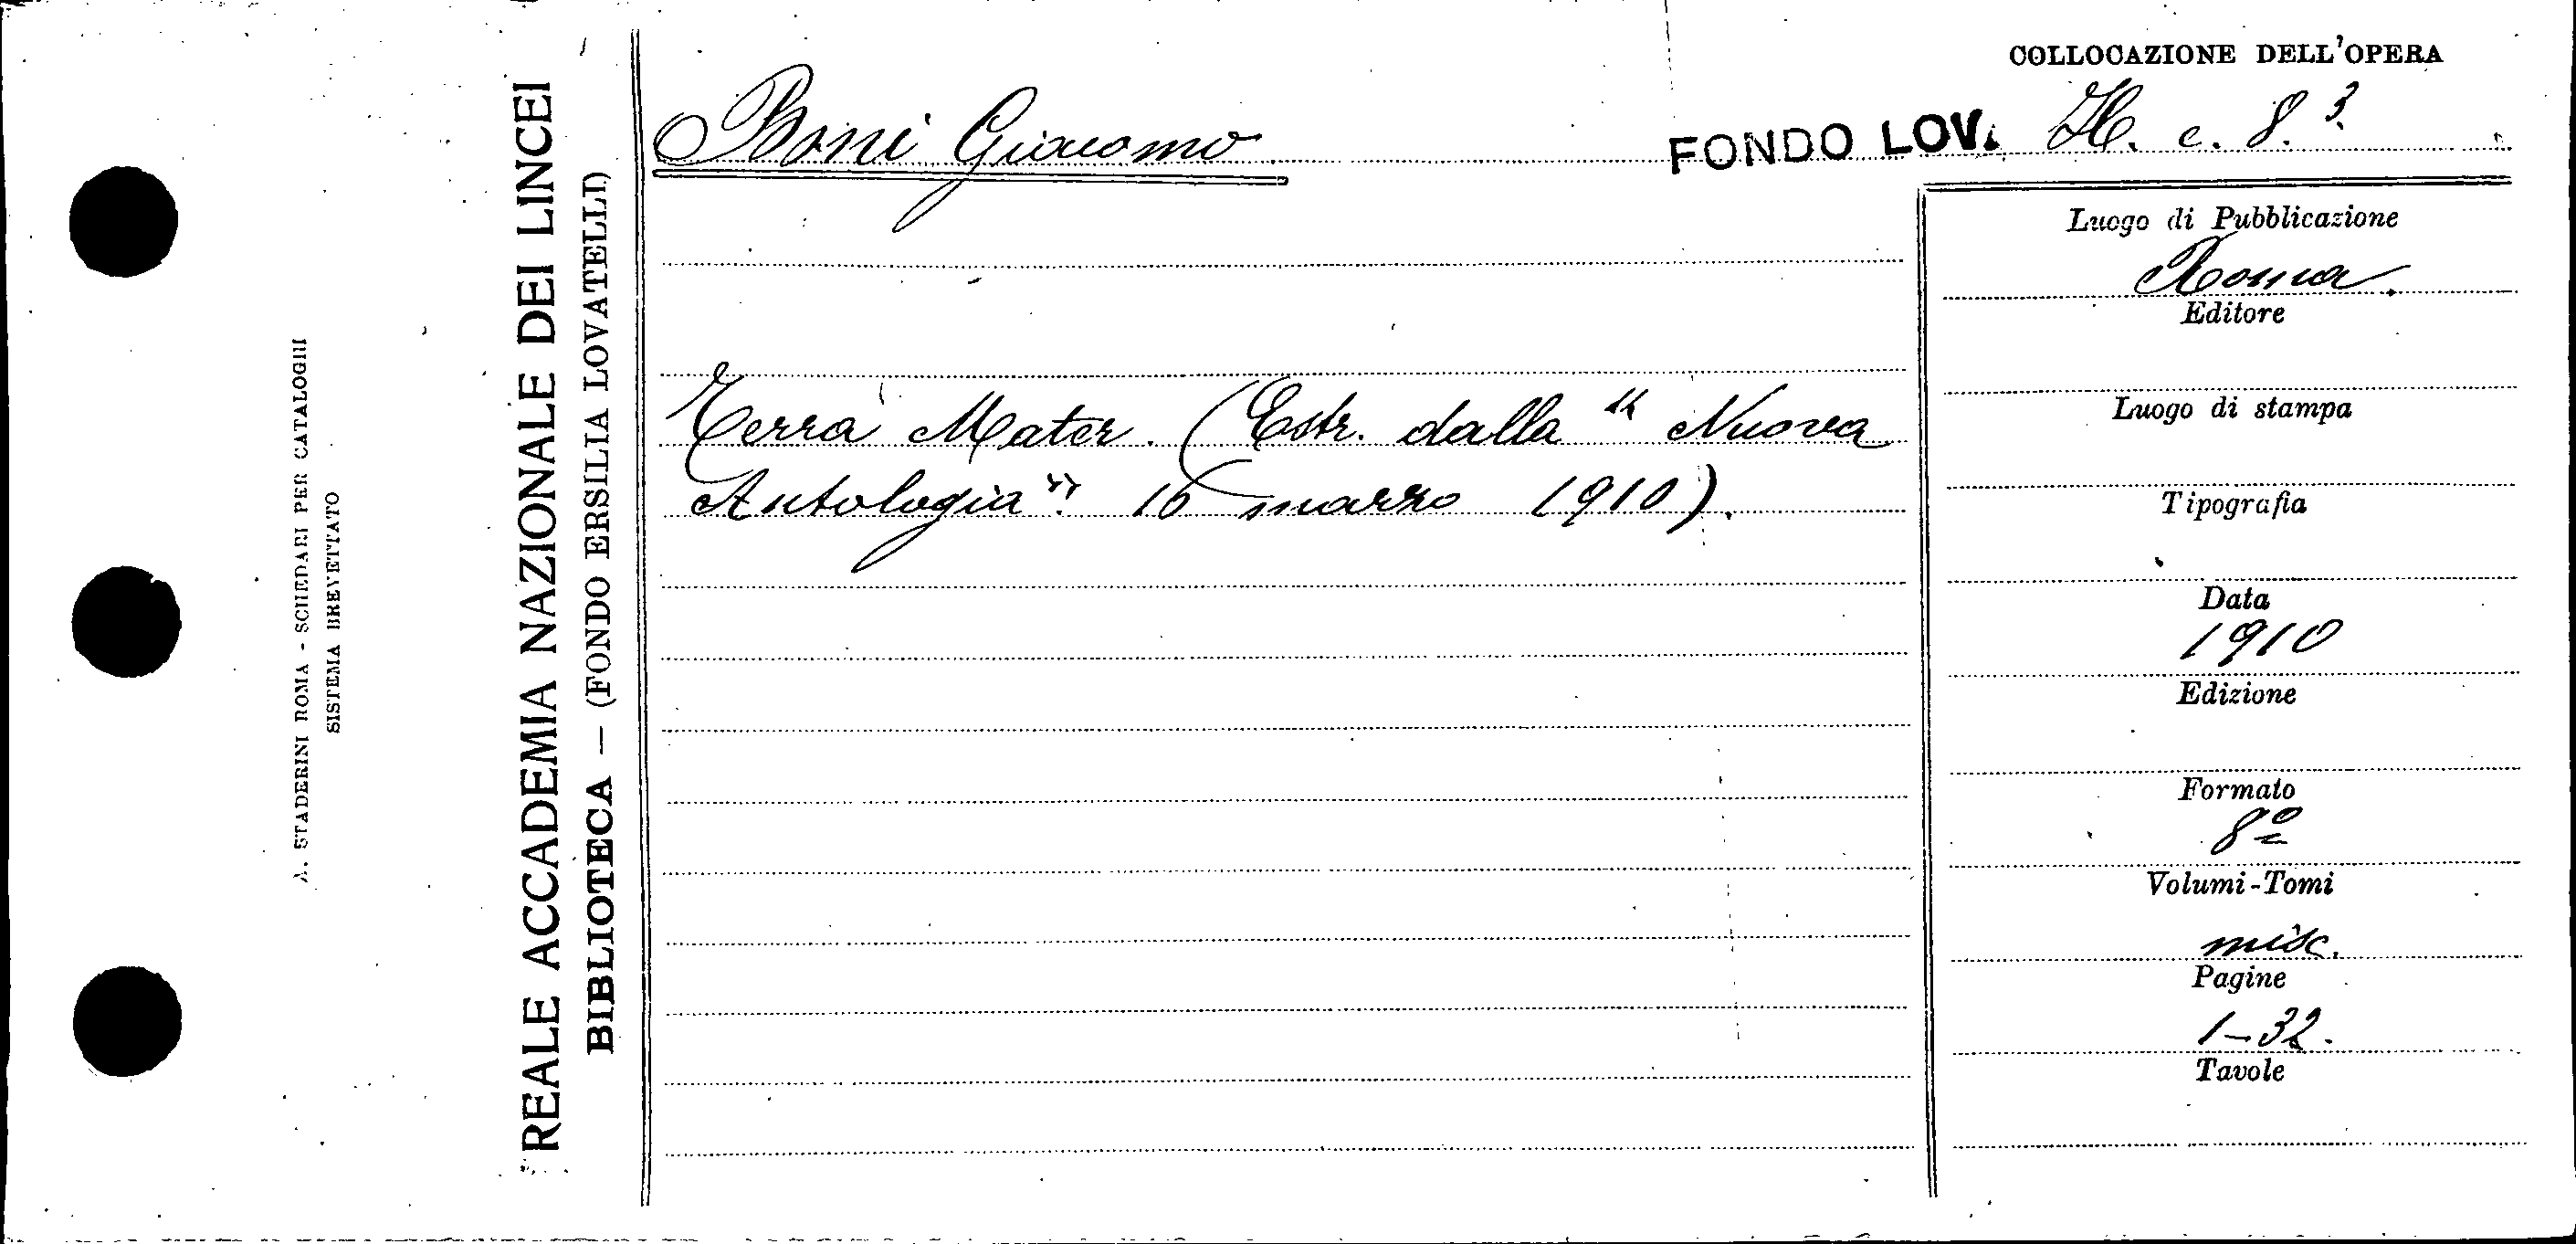 A. STADERINI ROMA - SCHEDARI PER CATALOGHI
SISTEMA BREVETTATO
REALE ACCADEMIA NAZIONALE DEI LINCEI
BIBLIOTECA — (FONDO ERSILIA LOVATELLI)
COLLOCAZIONE DELL'OPERA
Boni Giacomo
FONDO LOV. H. c. 8.3.
Terra Mater. (Estr. dalla " Nuova
Antologia". 16 marzo 1910).
Luogo di Pubblicazione
Roma.
Editore
Luogo di stampa
Tipografia
Data
1910
Edizione
Formato
8º
Volumi-Tomi
misc.
Pagine
1-32.
Tavole